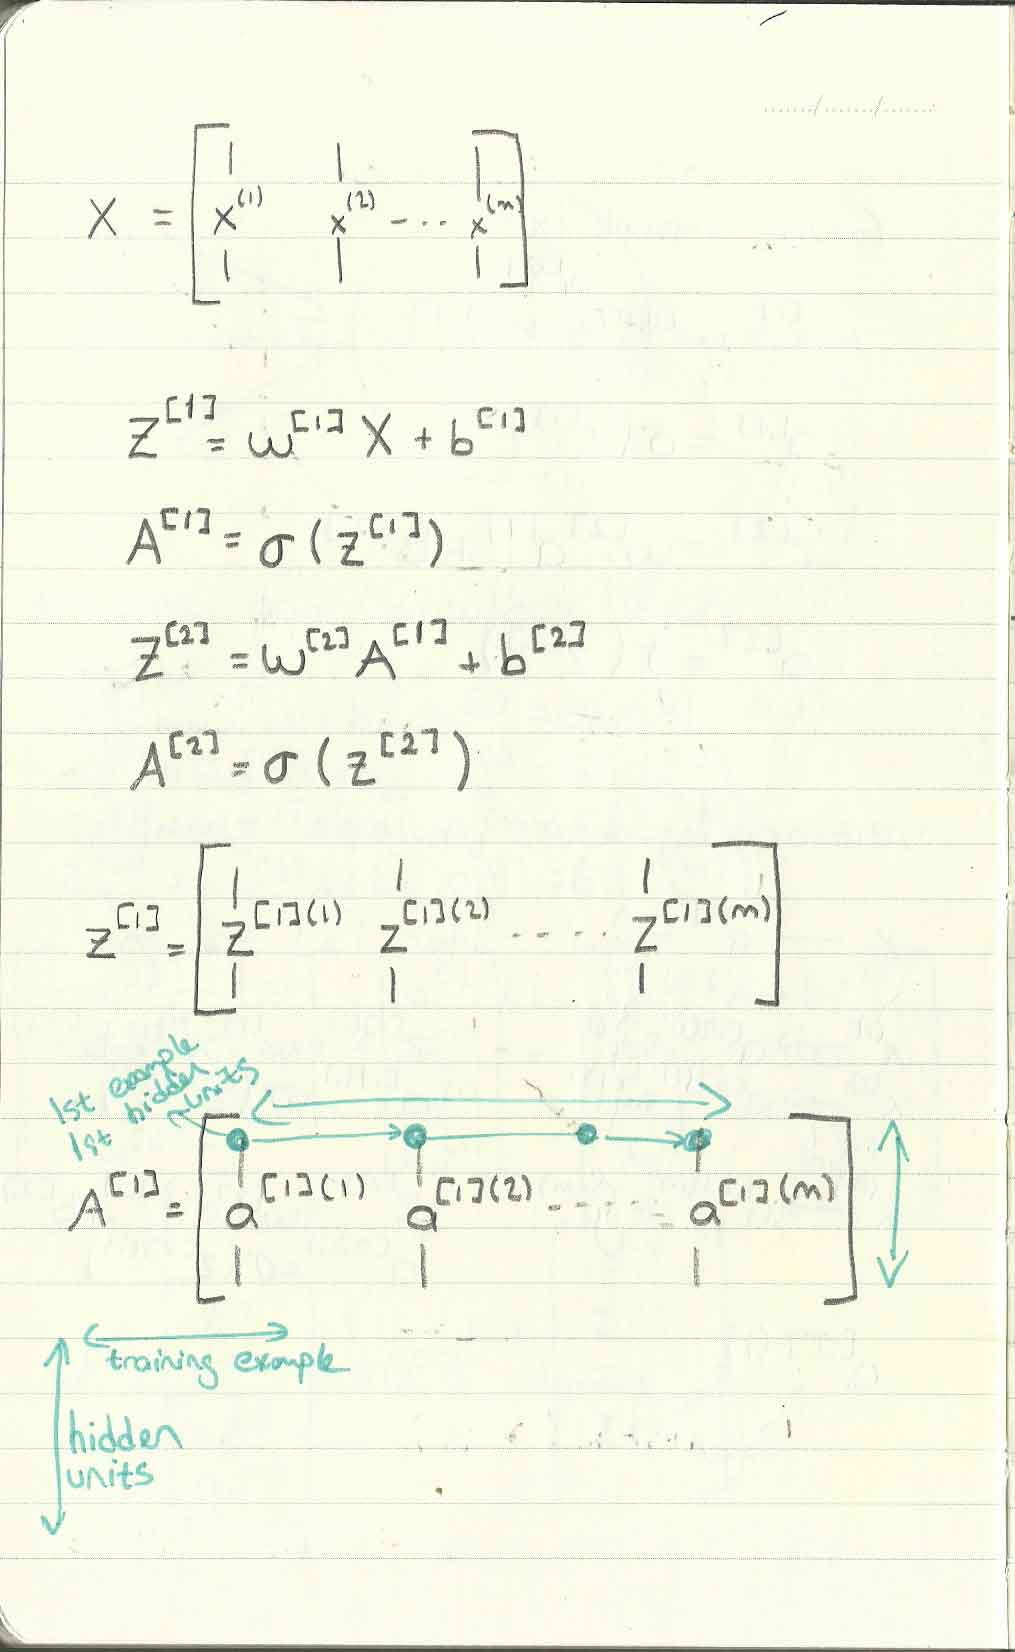 X = [ x^(1) x^(2) - ... x^(m) ]
Z^[1] = w^[1] X + b^[1]
A^[1] = σ(z^[1])
Z^[2] = w^[2] A^[1] + b^[2]
A^[2] = σ(z^[2])
Z^[1] = [ z^[1](1) z^[1](2) ..... z^[1](m) ]
1st example
1st hidden units
A^[1] = [ a^[1](1) a^[1](2) ..... a^[1](m) ]
training example
hidden
units